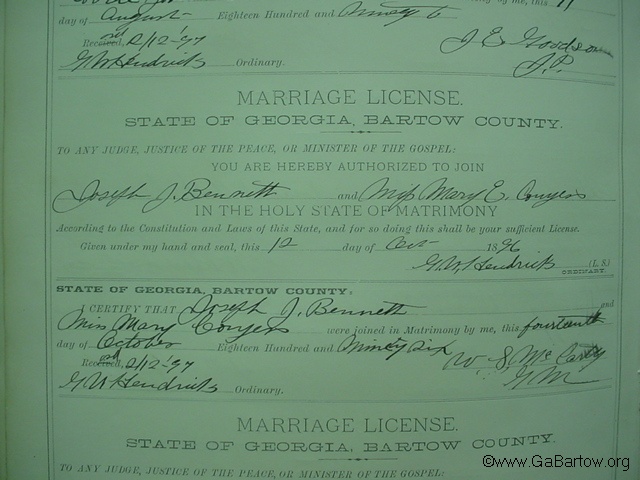 by me, this 11
day of August Eighteen Hundred and ninety 6
Received 2/12-97 J E Goodson
G W Hendricks Ordinary. J.P.
MARRIAGE LICENSE.
STATE OF GEORGIA, BARTOW COUNTY.
TO ANY JUDGE, JUSTICE OF THE PEACE, OR MINISTER OF THE GOSPEL:
YOU ARE HEREBY AUTHORIZED TO JOIN
Joseph J. Bennett and Miss Mary E. Conyers
IN THE HOLY STATE OF MATRIMONY
According to the Constitution and Laws of this State, and for so doing this shall be your sufficient License.
Given under my hand and seal, this 12 day of Oct 1896
G. W. Hendricks (L. S.)
ORDINARY.
STATE OF GEORGIA, BARTOW COUNTY:
I CERTIFY THAT Joseph J. Bennett and
Miss Mary Conyers were joined in Matrimony by me, this fourteenth
day of October Eighteen Hundred and Ninety six
Received, 2/12-97 W. S. McCarty
G W Hendricks Ordinary. G M
MARRIAGE LICENSE.
STATE OF GEORGIA, BARTOW COUNTY.
TO ANY JUDGE, JUSTICE OF THE PEACE, OR MINISTER OF THE GOSPEL:
©www.GaBartow.org